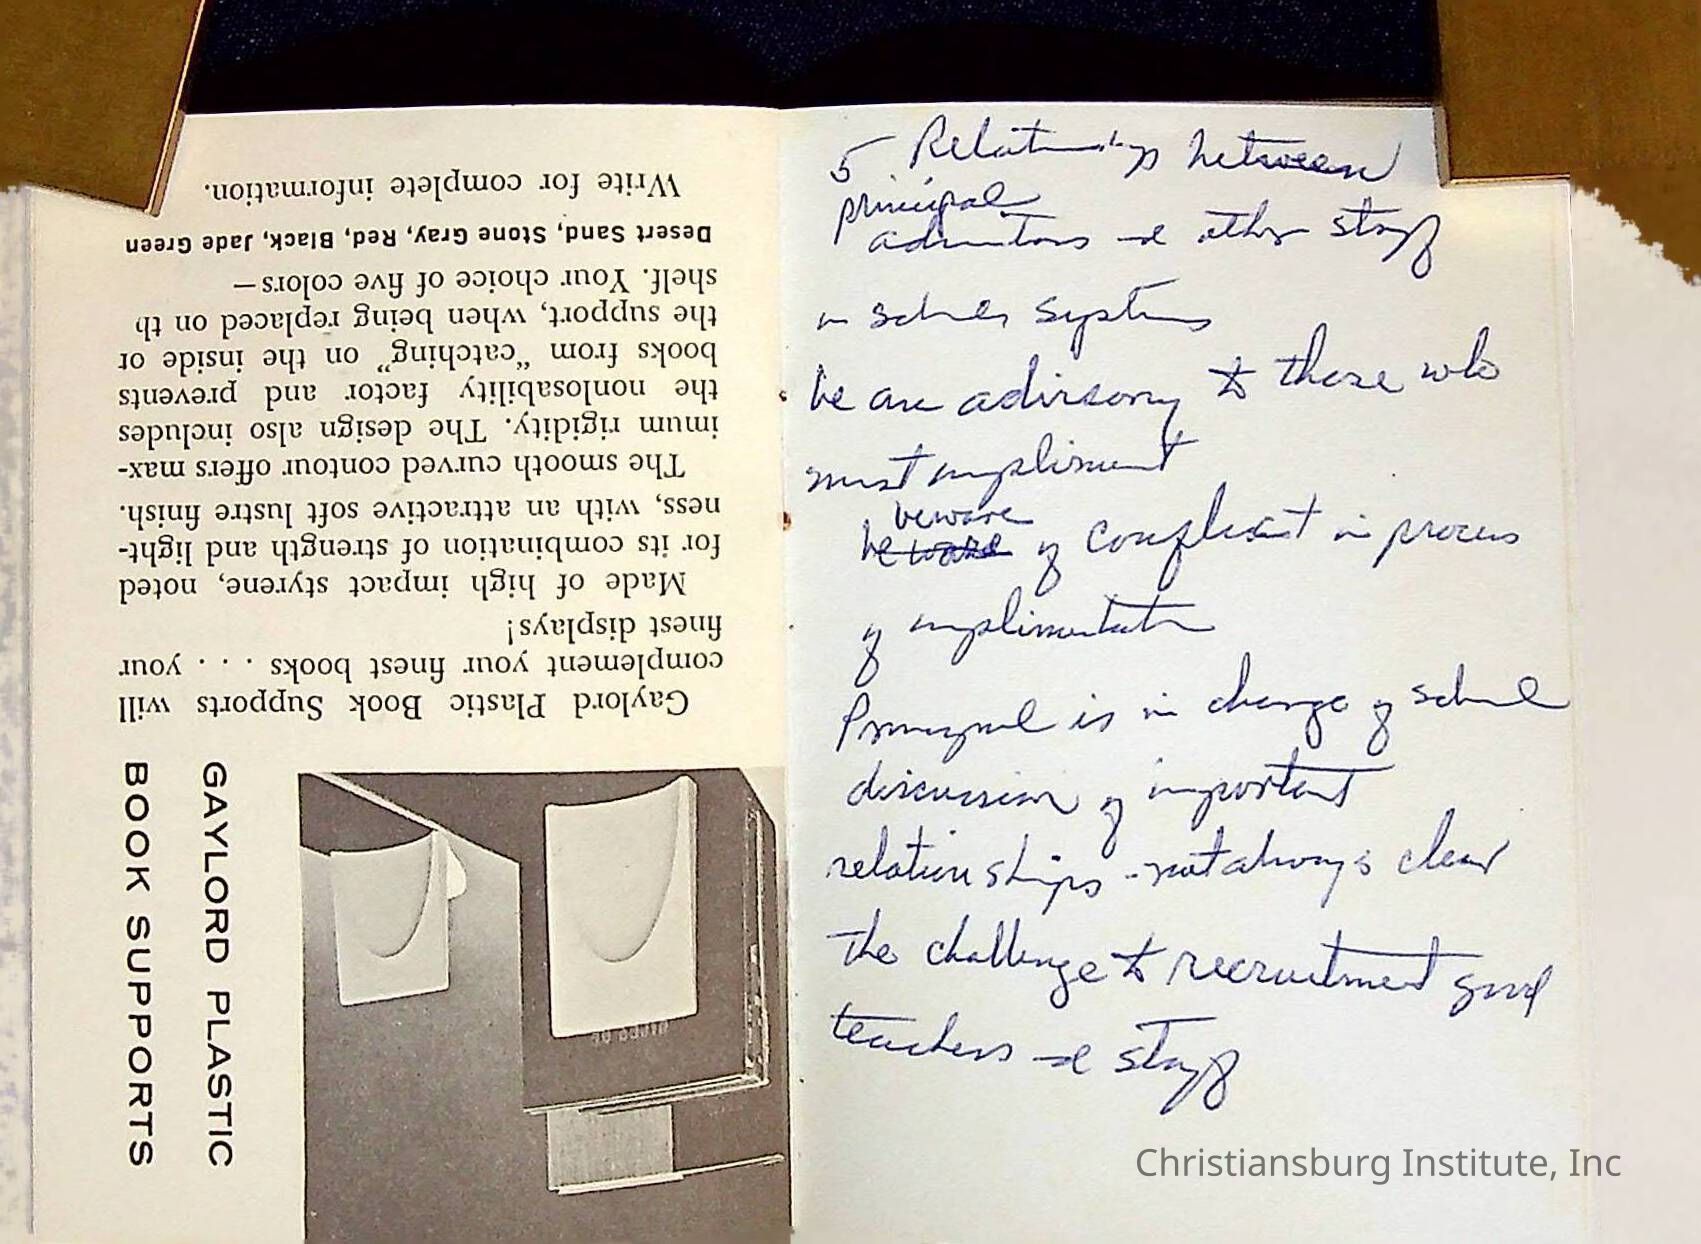 GAYLORD PLASTIC
BOOK SUPPORTS
Gaylord Plastic Book Supports will
complement your finest books . . . your
finest displays!
Made of high impact styrene, noted
for its combination of strength and light-
ness, with an attractive soft lustre finish.
The smooth curved contour offers max-
imum rigidity. The design also includes
the nonlosability factor and prevents
books from “catching” on the inside or
the support, when being replaced on th
shelf. Your choice of five colors—
Desert Sand, Stone Gray, Red, Black, Jade Green
Write for complete information.
5 Relationships between
principal
other staff
in systems
be are advisory to those who
must impliment
beware
be ware of in process
of
Principal is in charge of school
discussion of important
relationships - not always clear
the challenge to recruitment good
teachers staff
Christiansburg Institute, Inc